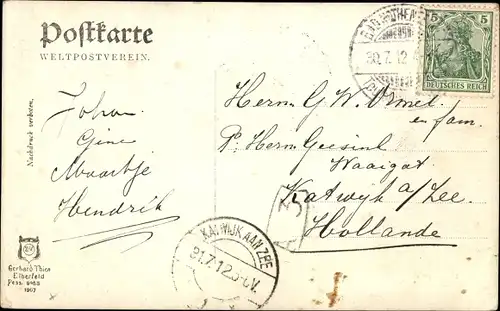 Postkarte
WELTPOSTVEREIN.
Nachdruck verboten.
Johan
Gine
Maartje
Hendrik
30.7.12
5 5
DEUTSCHES REICH
Herrn G. W.
en fam.
P. Herrn
Waaigat
Katwijk a/Zee.
Hollande
5
KATWIJK AAN ZEE
31.7.12.
Gerhard Thien
Elberfeld
1907